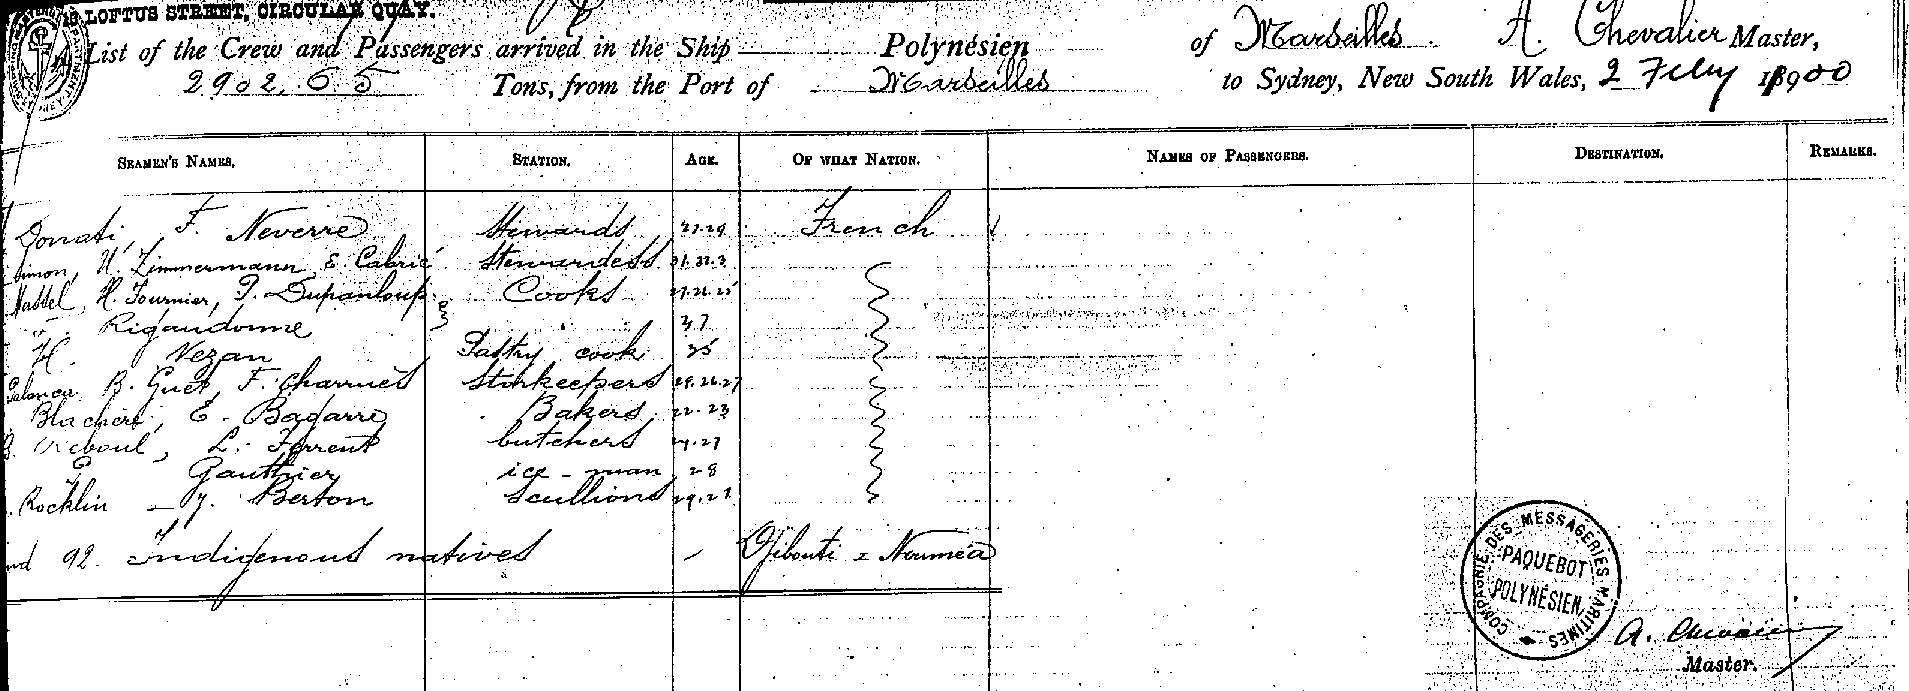 LOFTUS STREET, CIRCULAR QUAY.
List of the Crew and Passengers arrived in the Ship Polynésien of Marseilles. A. Chevalier Master,
2902.65 Tons, from the Port of Marseilles to Sydney, New South Wales, 2 Feby 1900
SEAMEN'S NAMES. STATION. AGE. OF WHAT NATION. NAMES OF PASSENGERS. DESTINATION. REMARKS.
Donati, F. Neverre Stewards French
Simon, U. Zimmermann, E. Cabrié Stewardess
H. Fournier, P. Dupanloup Cooks
Rigaudonne 37
H. Nezan Pastry cook 35
Palanca B. Guet, F. Charrues Storkeepers
Blachere, E. Badarre Bakers 22.23
Reboul, L. Ferrent butchers
Gauthier ice-man 28
Rocklin - J. Berton Scullions
92. Indigenous natives - Djibouti = Nouméa
COMPAGNIE DES MESSAGERIES MARITIMES
PAQUEBOT
POLYNÉSIEN
A. Chevalier
Master.